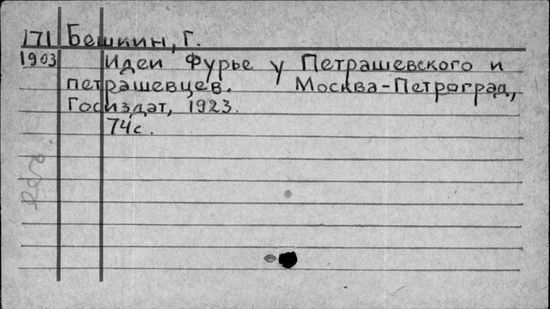 171 Бешкин, Г.
1903 Идеи Фурье у Петрашевского и
петрашевцев. Москва-Петроград,
Госиздат, 1923.
74с.